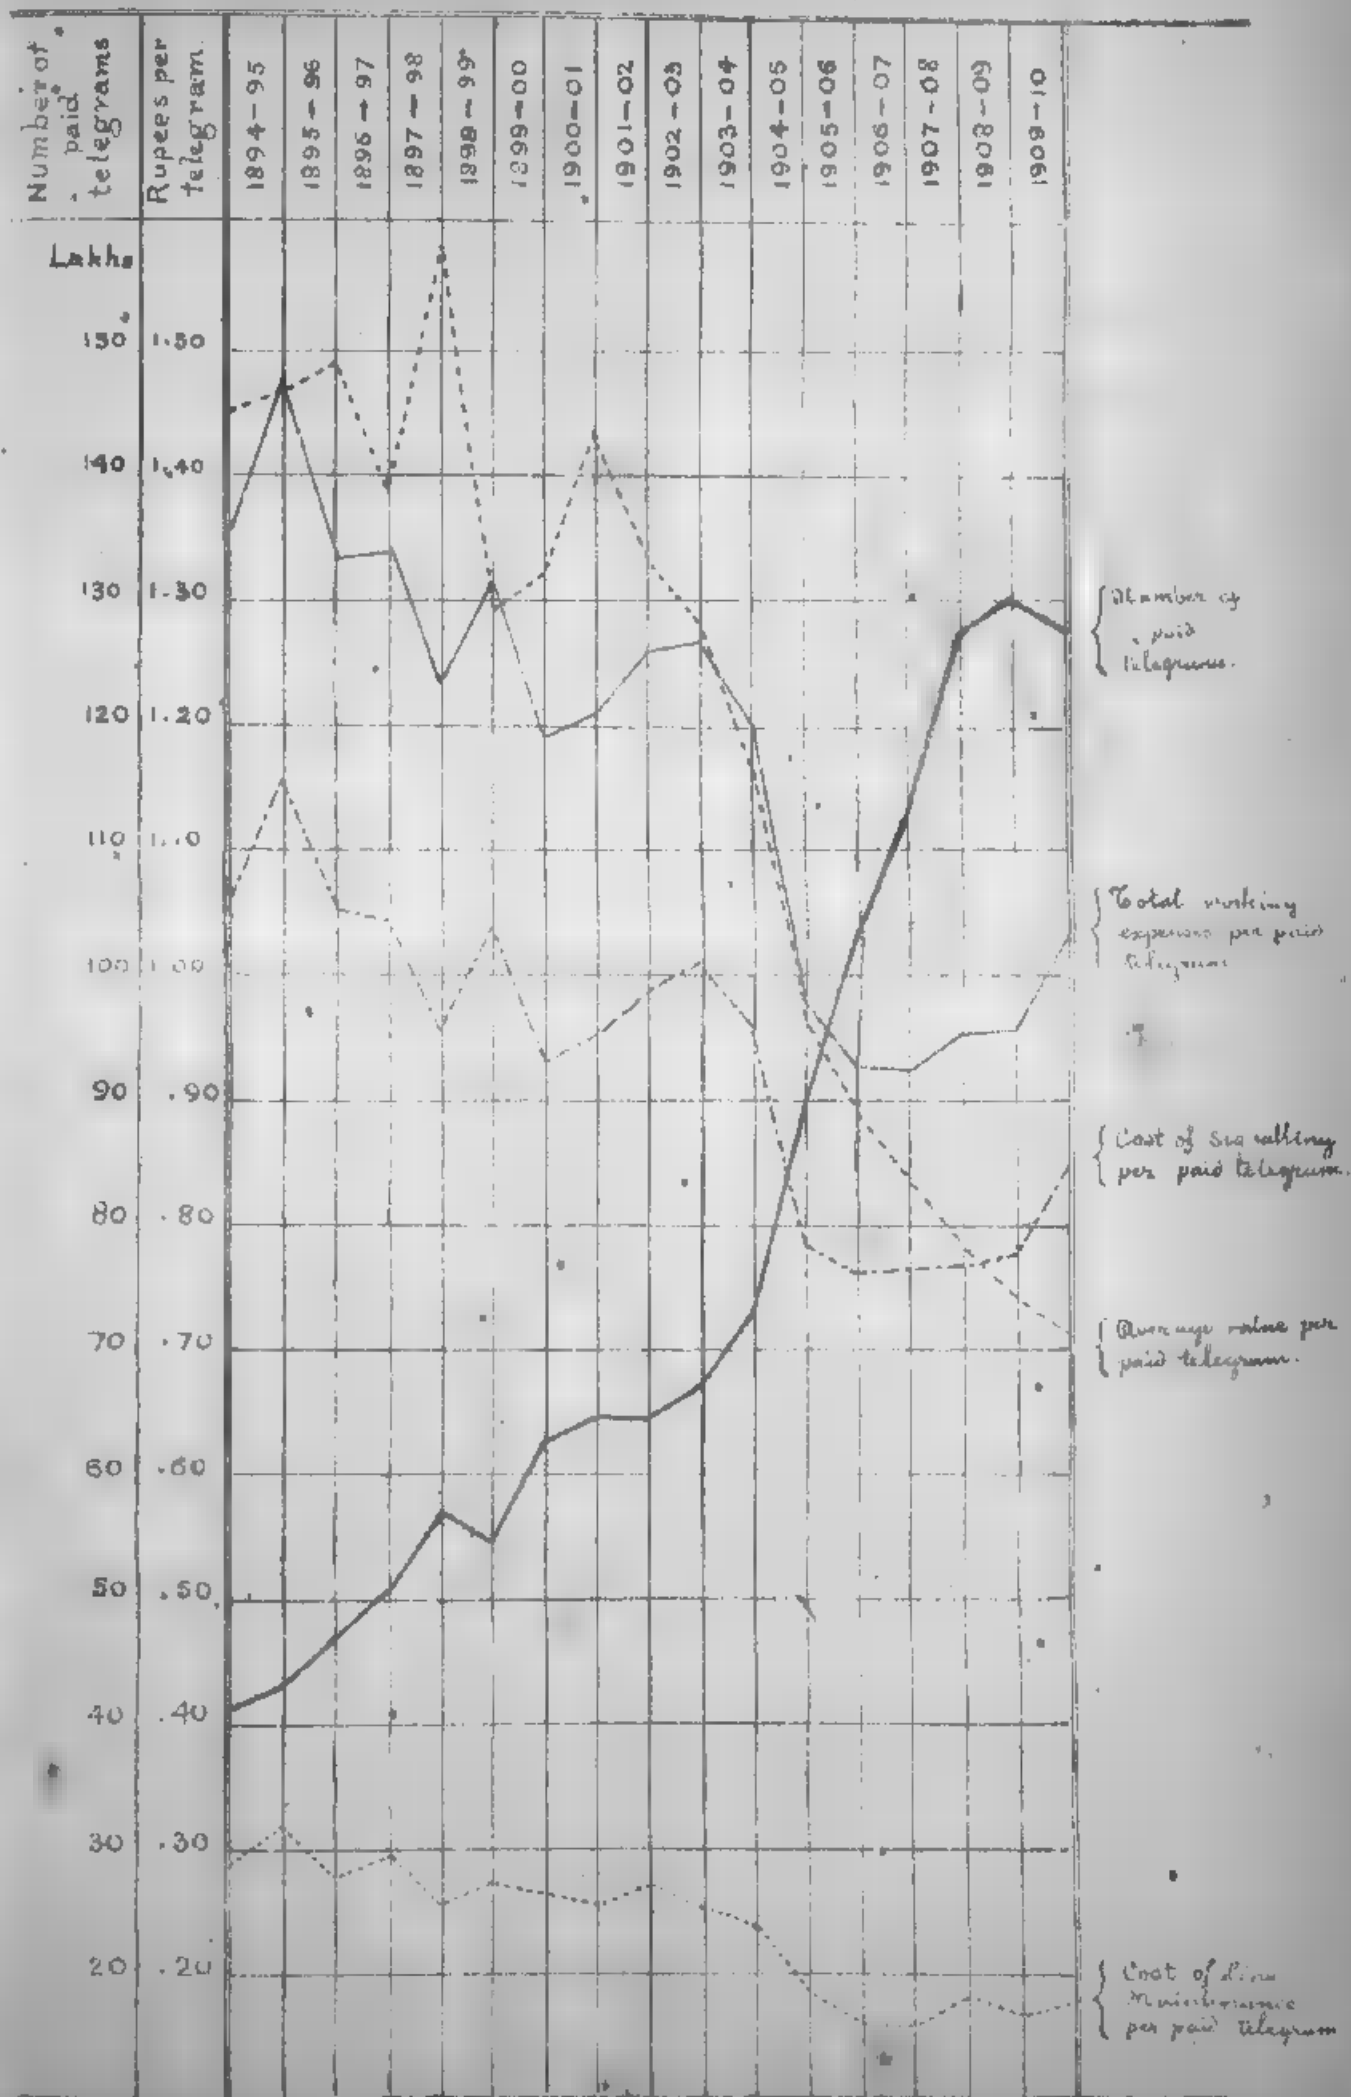 Number of
paid
telegrams
Rupees per
telegram.
1894-95
1895-96
1896-97
1897-98
1898-99
1899-00
1900-01
1901-02
1902-03
1903-04
1904-05
1905-06
1906-07
1907-08
1908-09
1909-10
Lakhs
150 1.50
140 1.40
130 1.30
120 1.20
110 1.10
100 1.00
90 .90
80 .80
70 .70
60 .60
50 .50
40 .40
30 .30
20 .20
Number of
paid
telegrams.
Total working
expenses per paid
telegram
Cost of Signalling
per paid telegram.
Average value per
paid telegram.
Cost of Line
Maintenance
per paid telegram